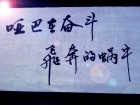 哑巴在奋斗
飞奔的蜗牛